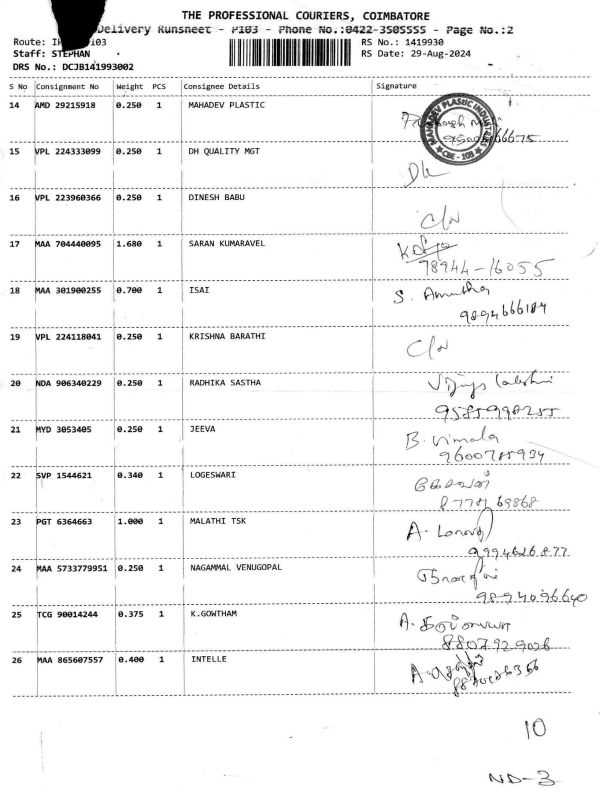 THE PROFESSIONAL COURIERS, COIMBATORE
Delivery Runsheet - P103 - Phone No.:0422-3505555 - Page No.:2
Route: 103
Staff: STEPHAN
DRS No.: DCJB141993002
RS No.: 1419930
RS Date: 29-Aug-2024
S No Consignment No Weight PCS Consignee Details Signature
14 AMD 29215918 0.250 1 MAHADEV PLASTIC
MAHADEV PLASTIC INDUSTRIES
CBE - 103
15 VPL 224333099 0.250 1 DH QUALITY MGT
16 VPL 223960366 0.250 1 DINESH BABU
17 MAA 704440095 1.680 1 SARAN KUMARAVEL
78944-16055
18 MAA 301900255 0.700 1 ISAI S. Amutha
9894666184
19 VPL 224118041 0.250 1 KRISHNA BARATHI
20 NDA 906340229 0.250 1 RADHIKA SASTHA
21 MYD 3053405 0.250 1 JEEVA B. Vimala
22 SVP 1544621 0.340 1 LOGESWARI
23 PGT 6364663 1.000 1 MALATHI TSK
9994626877
24 MAA 5733779951 0.250 1 NAGAMMAL VENUGOPAL
9894096640
25 TCG 90014244 0.375 1 K.GOWTHAM
8807929026
26 MAA 865607557 0.400 1 INTELLE
10
ND-3